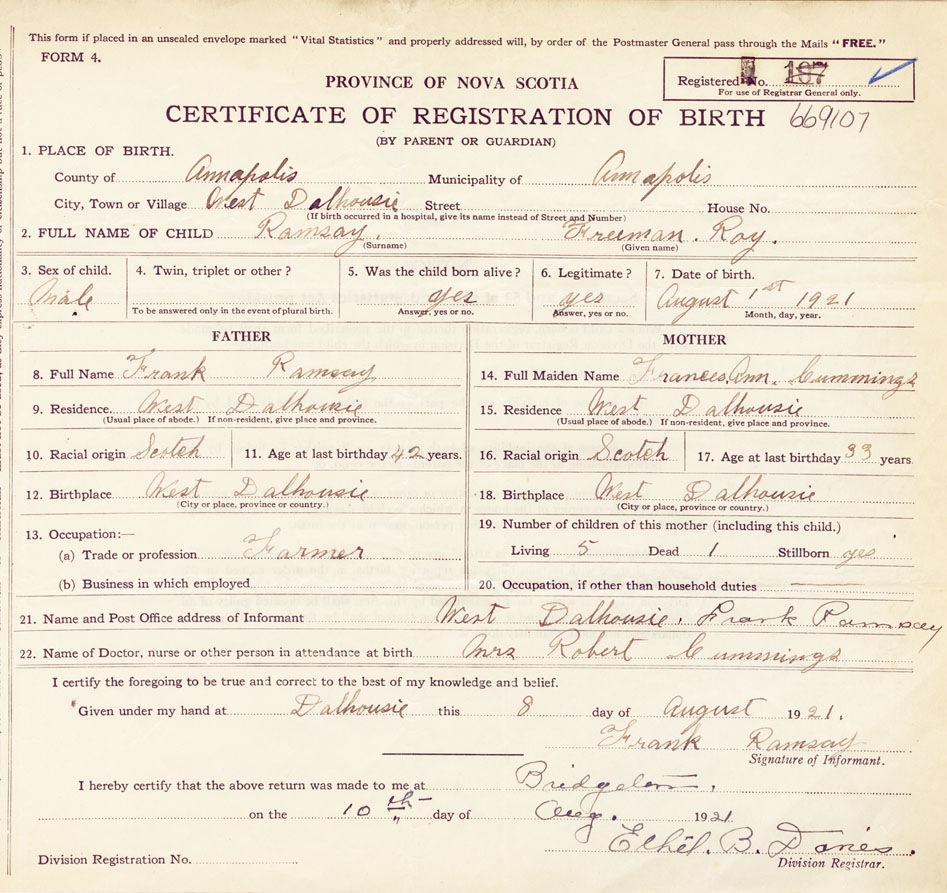 This form if placed in an unsealed envelope marked "Vital Statistics" and properly addressed will, by order of the Postmaster General pass through the Mails "FREE."
FORM 4.
Registered No. 187
For use of Registrar General only.
PROVINCE OF NOVA SCOTIA
CERTIFICATE OF REGISTRATION OF BIRTH 669107
(BY PARENT OR GUARDIAN)
1. PLACE OF BIRTH.
County of Annapolis Municipality of Annapolis
City, Town or Village West Dalhousie Street House No.
(If birth occurred in a hospital, give its name instead of Street and Number)
2. FULL NAME OF CHILD Ramsay, Freeman. Roy.
(Surname) (Given name)
3. Sex of child. 4. Twin, triplet or other? 5. Was the child born alive? 6. Legitimate? 7. Date of birth.
Male yes yes August 1st 1921
To be answered only in the event of plural birth. Answer, yes or no. Answer, yes or no. Month, day, year.
FATHER MOTHER
8. Full Name Frank Ramsay 14. Full Maiden Name Frances Ann. Cummings
9. Residence. West Dalhousie 15. Residence West Dalhousie
(Usual place of abode.) If non-resident, give place and province. (Usual place of abode.) If non-resident, give place and province.
10. Racial origin Scotch 11. Age at last birthday 42 years. 16. Racial origin Scotch 17. Age at last birthday 33 years.
12. Birthplace West Dalhousie 18. Birthplace West Dalhousie
(City or place, province or country.) (City or place, province or country.)
13. Occupation:— 19. Number of children of this mother (including this child.)
(a) Trade or profession Farmer Living 5 Dead 1 Stillborn yes
(b) Business in which employed 20. Occupation, if other than household duties
21. Name and Post Office address of Informant West Dalhousie. Frank Ramsay
22. Name of Doctor, nurse or other person in attendance at birth Mrs Robert Cummings
I certify the foregoing to be true and correct to the best of my knowledge and belief.
Given under my hand at Dalhousie this 8 day of August 1921.
Frank Ramsay
Signature of Informant.
I hereby certify that the above return was made to me at Bridgetown.
on the 10th day of Aug. 1921
Ethel. B. Davies.
Division Registrar.
Division Registration No.